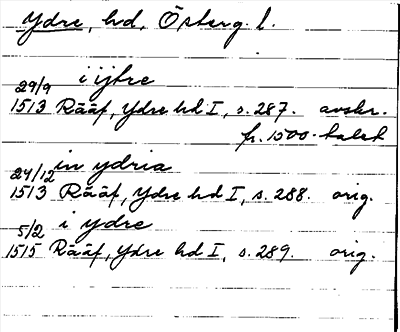 Ydre, hd, Österg. l.
i ijtre
29/9
1513 Rääf, Ydre hd I, s. 287. avskr.
fr. 1500-talet
in ydria
24/12
1513 Rääf, Ydre hd I, s. 288. orig.
i ydre
5/2
1515 Rääf, Ydre hd I, s. 289. orig.